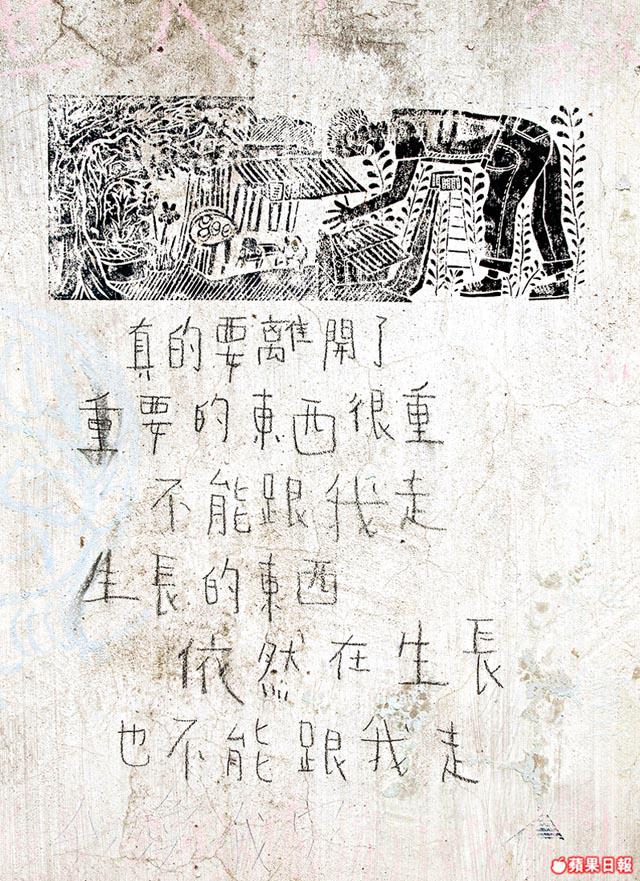 真的要離開了
重要的東西很重
不能跟我走
生長的東西
依然在生長
也不能跟我走
蘋果日報